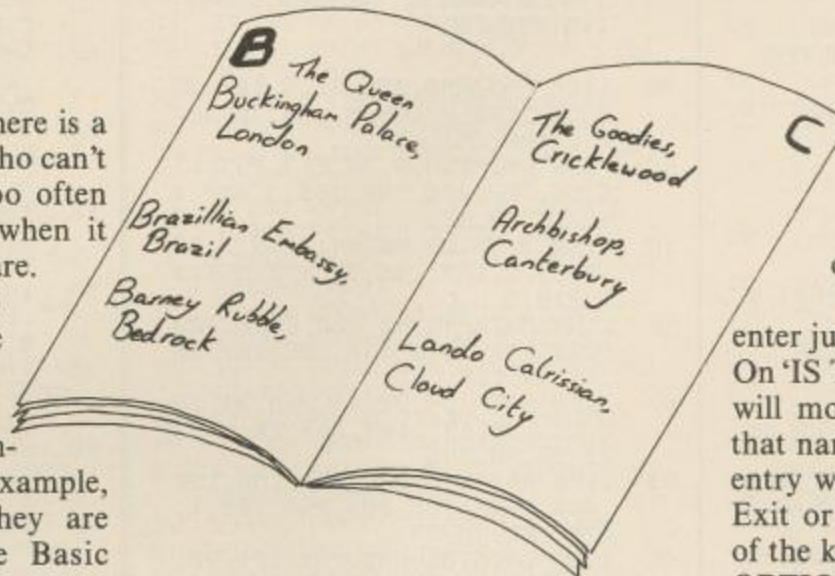 here is a
ho can't
oo often
when it
are.
n-
xample,
hey are
e Basic
B
The Queen
Buckingham Palace,
London
Brazillian Embassy,
Brazil
Barney Rubble,
Bedrock
C
The Goodies,
Cricklewood
Archbishop,
Canterbury
Lando Calrissian,
Cloud City
enter ju
On 'IS
will mo
that nar
entry w
Exit or
of the k